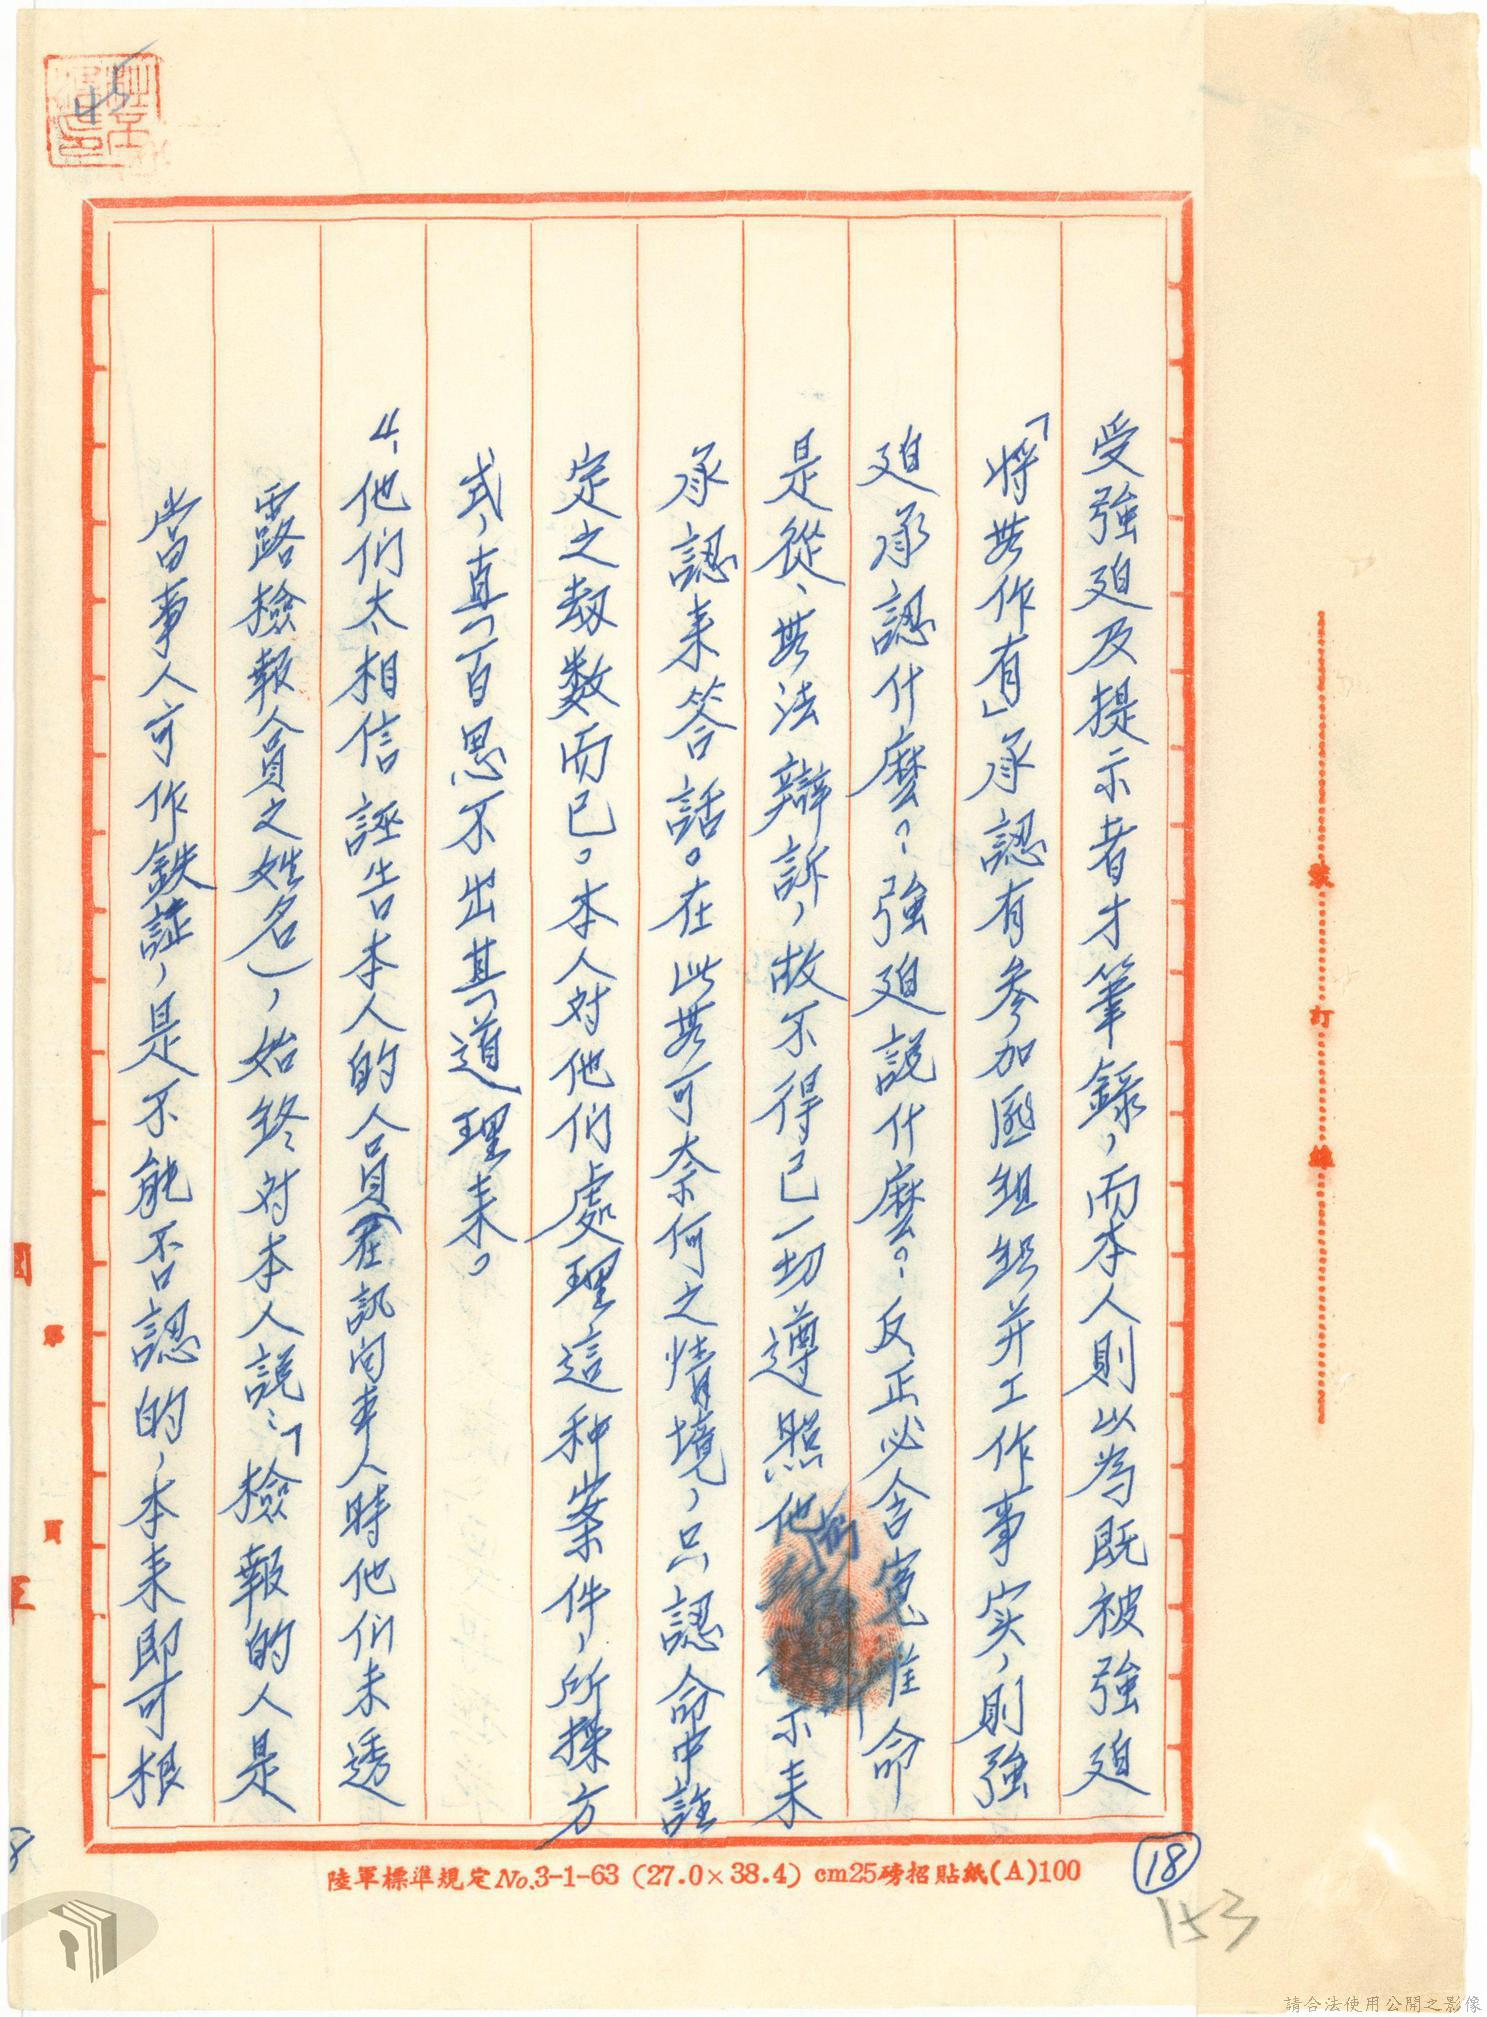 受強廹及提示者才筆錄，而本人則以為既被強廹
「將無作有」承認有參加匪組織并工作事实，則強
廹承認什麼？強廹說什麼？反正必含寃惟命
是從、無法辯訴，故不得已一切遵照他 不来
承認来答話。在此無可奈何之情境，只認命中註
定之劫数而已。本人对他们處理這种案件，所採方
式，真百思不出其道理来。
4、他们太相信誣告本人的人員（在訊问事人時他们未透
露檢報人員之姓名），始終对本人說：「檢報的人是
當事人可作鉄証，是不能否認的，本来即可根
陸軍標準規定No.3-1-63 (27.0×38.4) cm25磅招貼紙(A)100
18
153
45
裝 打 線
第 頁
請合法使用公開之影像